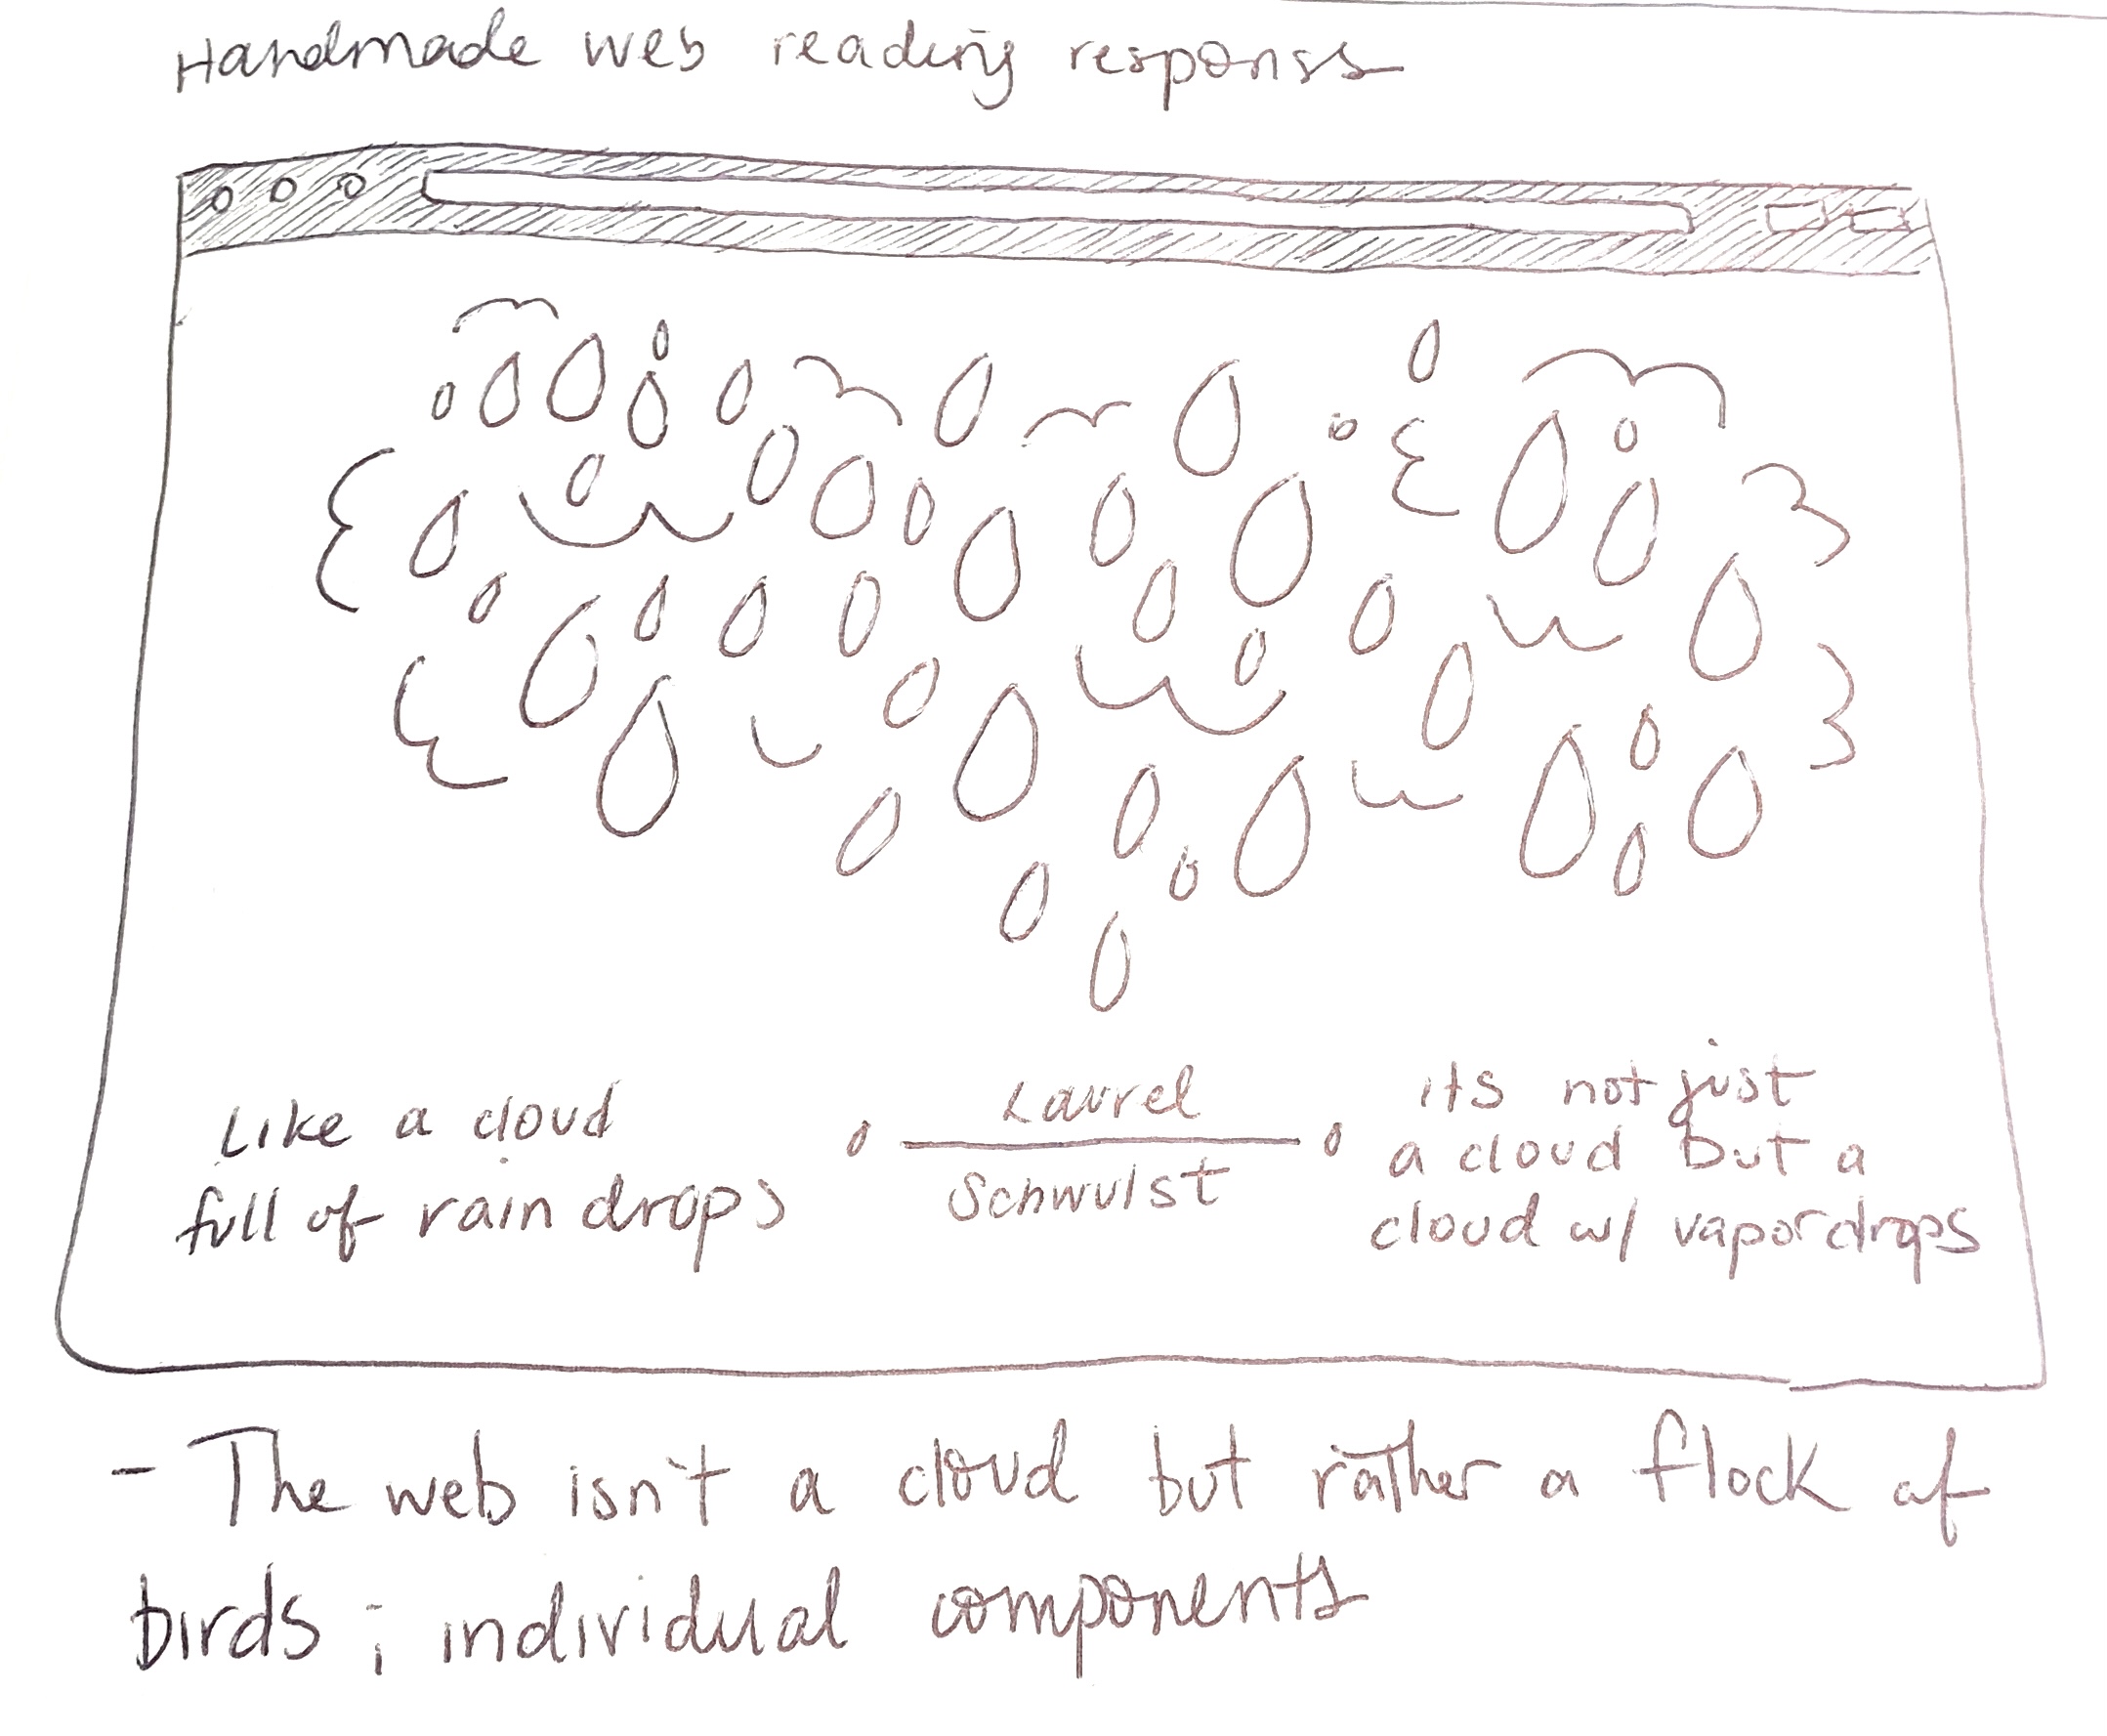 Handmade web reading response
Like a cloud
full of rain drops
Laurel
Schwulst
its not just
a cloud but a
cloud w/ vapor drops
- The web isn't a cloud but rather a flock of
birds; individual components